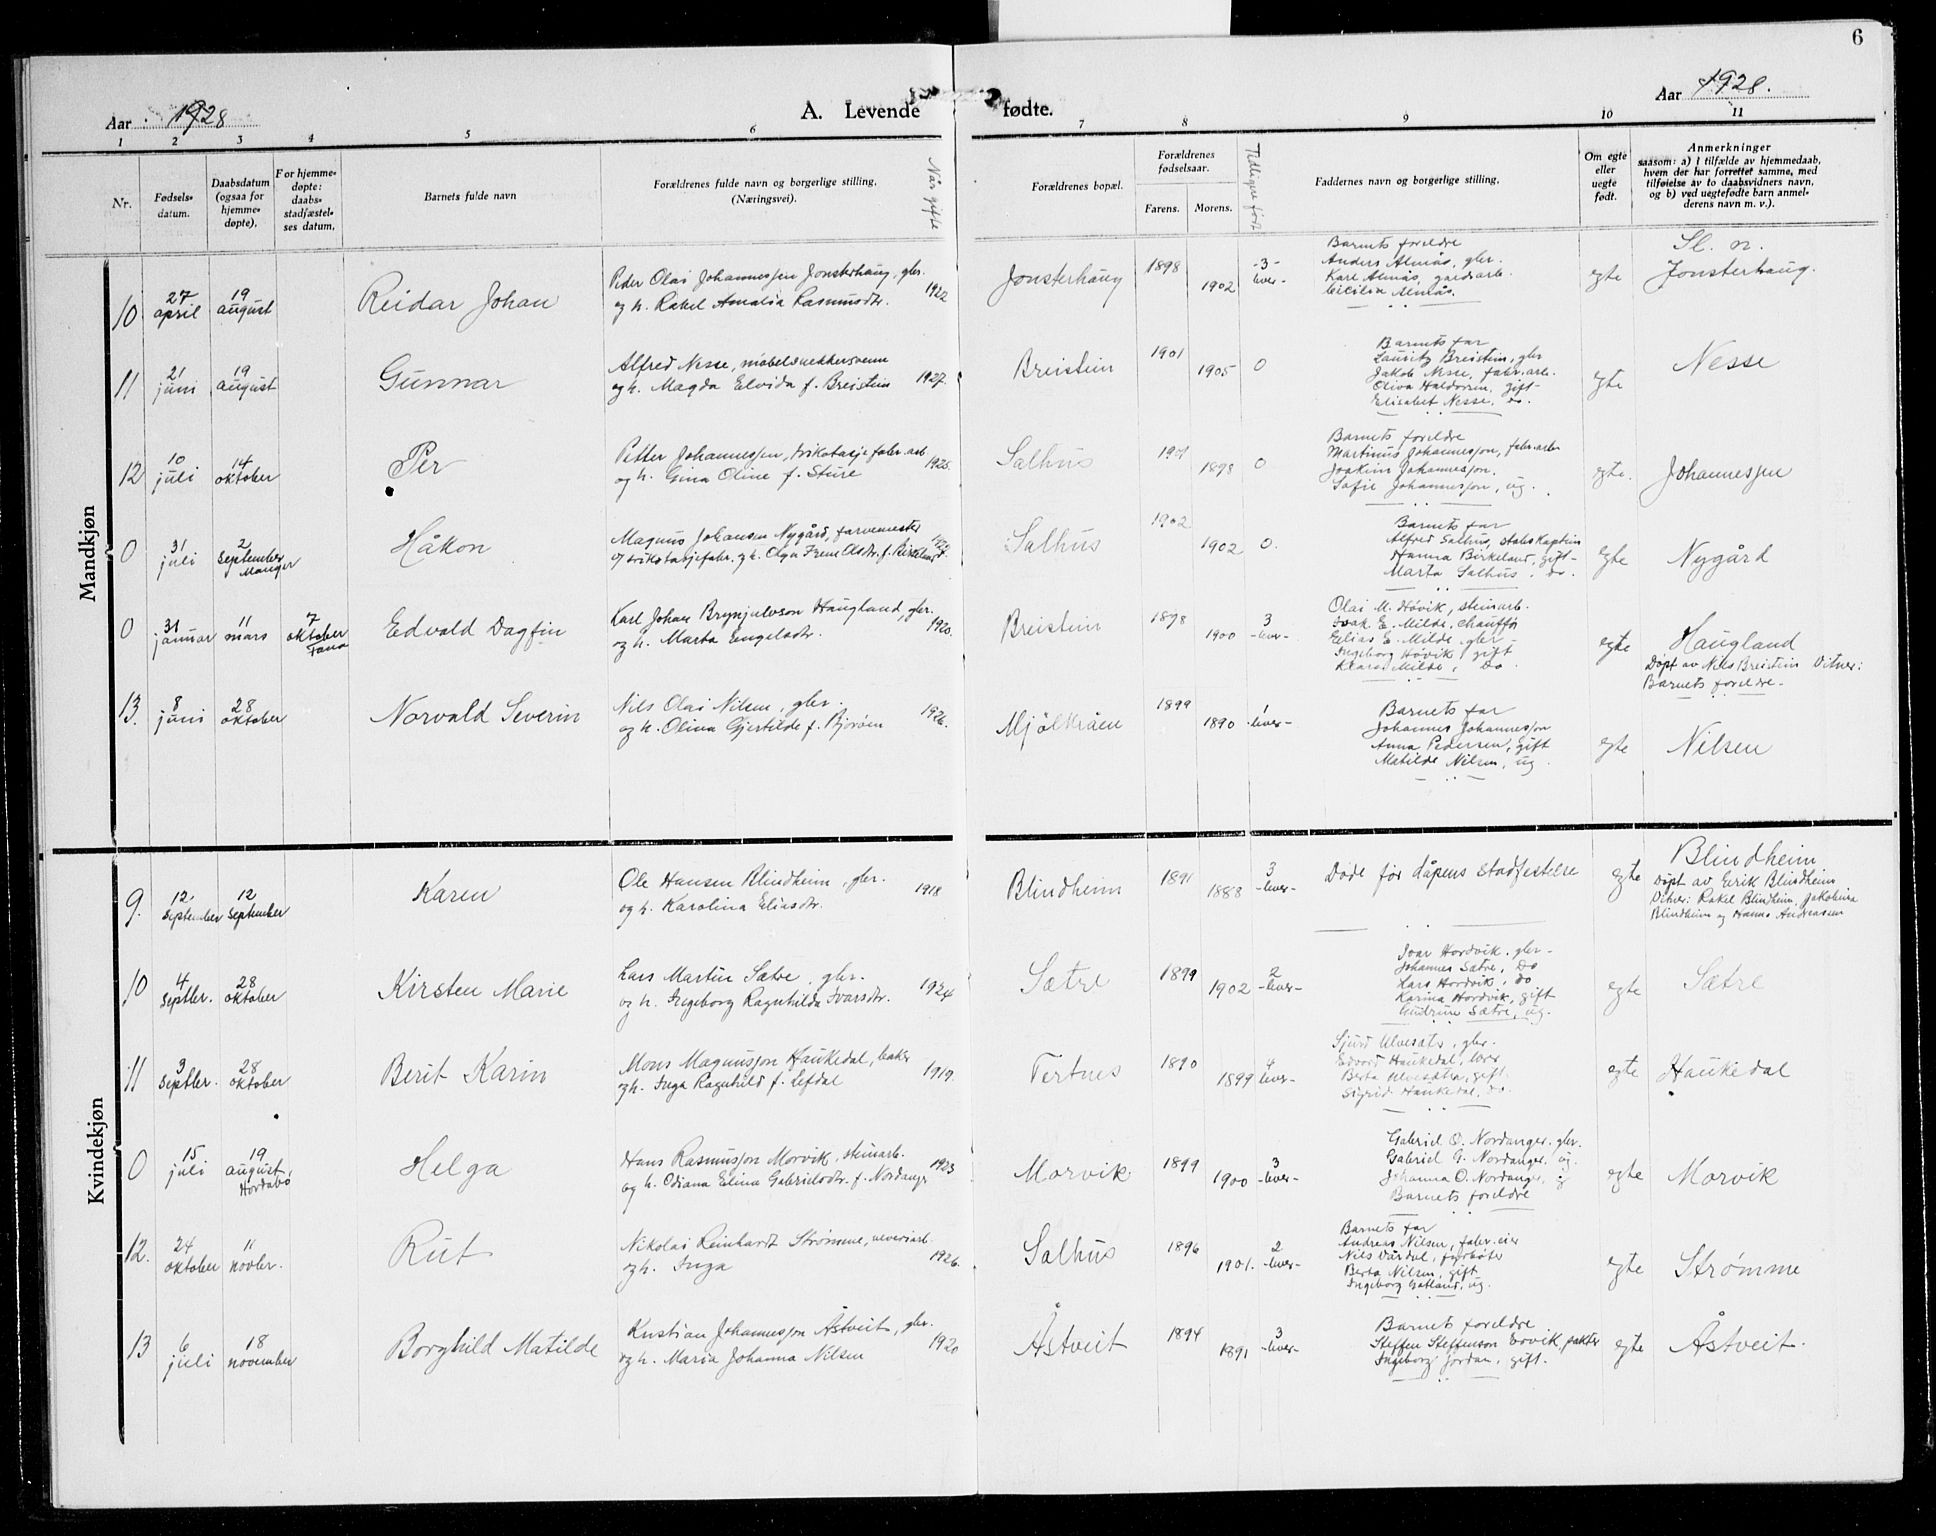 6
Aar 1928
A. Levende fødte.
Aar 1928.
1 2 3 4 5 6 7 8 9 10 11
Nr.
Fødsels-
datum.
Daabsdatum
(ogsaa for
hjemme-
døpte).
For hjemme-
døpte:
daabs-
stadfæstel-
ses datum.
Barnets fulde navn
Forældrenes fulde navn og borgerlige stilling.
(Næringsvei).
Når gifte
Forældrenes bopæl.
Forældrenes
fødselsaar.
Farens. Morens.
Tidligere født
Faddernes navn og borgerlige stilling.
Om egte
eller
uegte
født.
Anmerkninger
saasom: a) I tilfælde av hjemmedaab,
hvem der har forrettet samme, med
tilføielse av to daabsvidners navn,
og b) ved uegtefødte barn anmel-
derens navn m. v.).
Mandkjøn
10
27 april
19 august
Reidar Johan
Peder Olai Johannessen Jonsterhaug, gbr.
og h. Rakel Amalia Rasmusdtr.
1922
Jonsterhaug
1898
1902
-3-
lever-
Barnets foreldre
Anders Almås, gbr.
Karl Almås, gårdsarb.
Cecilia Almås.
egte
Sl. n.
Jonsterhaug.
11
21 juni
19 august
Gunnar
Alfred Nesse, møbelsnekkersvenn
og h. Magda Elvida f. Breistein
1927.
Breistein
1901
1905
0
Barnets far
Lauritz Breistein, gbr
Jakob Nesse, fabr.arb.
Oliva Haldorsen, gift-
Elisabet Nesse, do.
egte
Nesse
12
10 juli
14 oktober
Per
Petter Johannessen, trikotasjefabr.arb
og h. Gina Oline f. Sture
1925.
Salhus
1901
1898
0
Barnets foreldre
Martinus Johannesson, fabr.arb.
Joakim Johannesson.
Sofie Johannesson, ug.
egte.
Johannessen
0
31 juli
2 september
Manger
Håkon
Magnus Johansen Nygård, farvemester
v/ trikotasjefabr. og h. Olga Irene Olsdtr. f.
Salhus
1902
1902
0.
Barnets far
Alfred Salhus, stabskaptein
Hanna Birkeland, gift-
Marta Salhus, do.
egte
Nygård
0
31 januar
11 mars
7 oktober
Fana
Edvald Dagfin
Karl Johan Brynjulvson Haugland, gbr.
og h. Marta Engelsdtr.
1920.
Breistein
1898
1900
3
-lever-
Olai M. Høvik, steinarb.
Isak E. Milde, chauffø
Elias E. Milde, gbr-
Ingeborg Høvik, gift
Klara Milde, Do.
egte
Haugland
Døpt av Nils Breistein Vitner:
Barnets foreldre-
13.
8 juni
28 oktober
Norvald Severin
Nils Olai Nilsen, gbr.
og h. Olina Gjertilde f. Bjørøen
1926.
Mjölkråen
1899
1890
1
-lever-
Barnets far
Johannes Johannesson
Anna Pedersen, gift
Matilde Nilsen, ug.
egte
Nilsen
Kvindekjøn
9.
12 september
12 september
Karen
Ole Hansen Blindheim, gbr.
og h. Karolina Eliasdtr.
1918
Blindheim
1891
1888
3
-lever-
Døde før dåpens stadfestelse
egte
Blindheim
Døpt av Eirik Blindheim
Vitner: Rakel Blindheim, Jakobina
Blindheim og Hanna Andreassen
10
4 septbr.
28 oktober
Kirsten Marie
Lars Martin Sætre, gbr.
og h. Ingeborg Ragnhilda Ivarsdtr.
1924
Sætre
1899
1902
2
-lever-
Ivar Hordvik, gbr-
Johannes Sætre, Do
Lars Hordvik, do.
Karina Hordvik, gift
Gudrun Sætre, ug.
egte
Sætre
11
3 septbr.
28 oktober
Berit Karin
Mons Magnusson Haukedal, baker
og h. Inga Ragnhild f. Lefdal
1919.
Tertnes
1890
1899
4
lever-
Sjurd Ulvesæter, gbr.
Edvard Haukedal, lærer
Berta Ulvesæter, gift.
Sigrid Haukedal, do.
egte
Haukedal
0
15 juli
19 august
Hordabø
Helga
Hans Rasmusson Morvik, steinarb.
og h. Odiana Elina Gabrielsdtr. f. Nordanger
1923
Morvik
1899
1900
3
-lever-
Gabriel O. Nordanger, gbr.
Gabriel G. Nordanger, ug.
Johanna O. Nordanger, ug
Barnets foreldre
egte
Morvik
12.
24 oktober
11 novbr.
Rut
Nikolai Reinhardt Strømme, veveriarb.
og h. Inga
1926.
Salhus
1896
1901.
2
-lever-
Barnets far
Andreas Nilsen, fabr.eier
Nils Vårdal, fyrbøter
Berta Nilsen, gift
Ingeborg Gatland, ug.
egte
Strømme
13
6 juli
18 november
Borghild Matilde
Kristian Johannesson Åstveit, gbr.
og h. Maria Johanna Nilsen
1920
Åstveit
1894
1891
3
-lever-
Barnets foreldre
Steffen Steffenson Eervik, pakter
Ingeborg Jordan, gift.
egte
Åstveit.